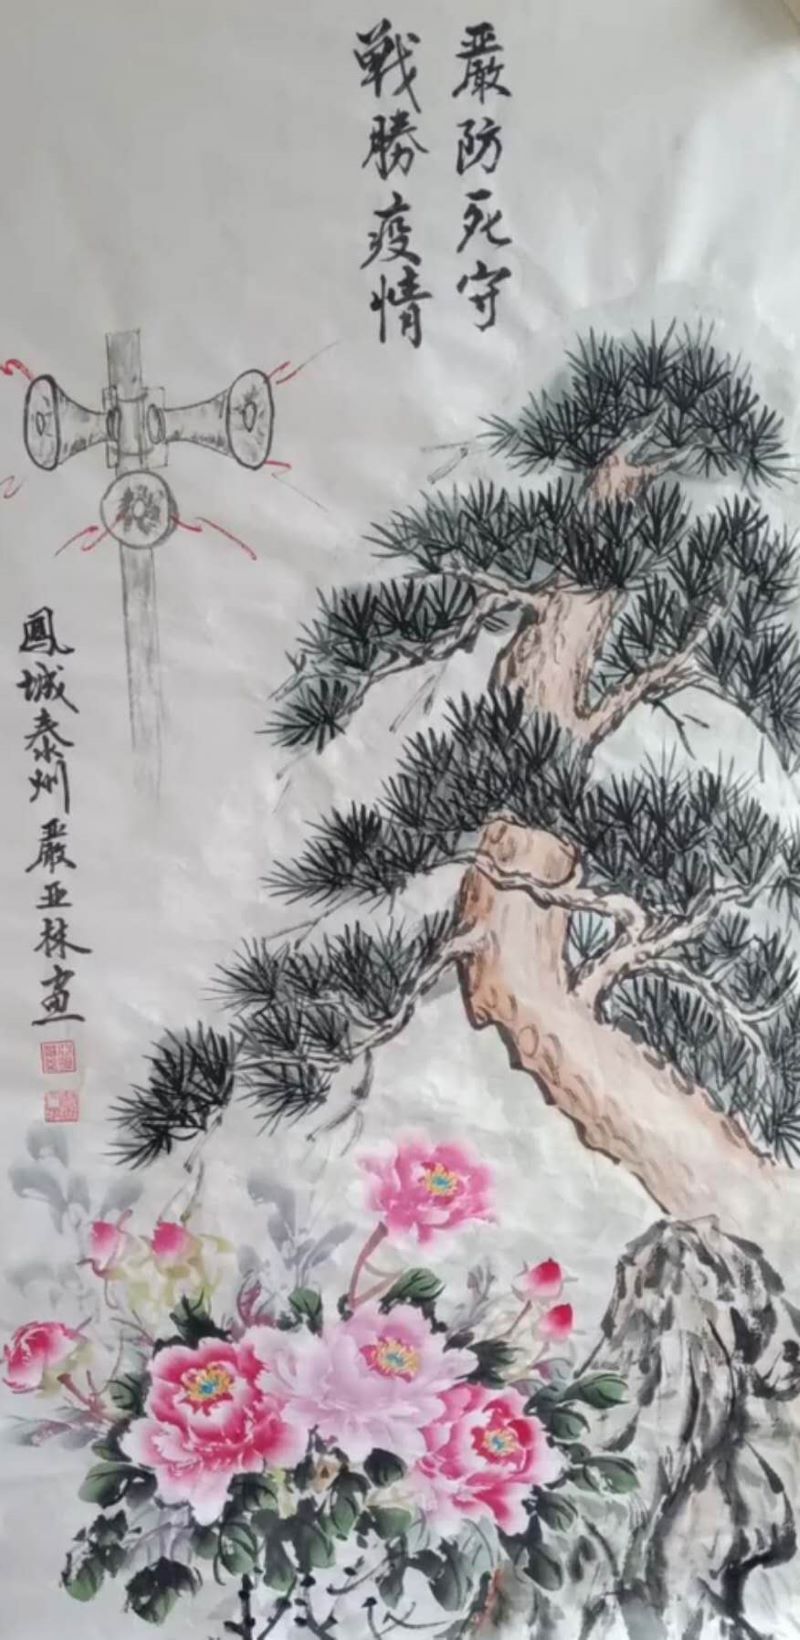 嚴防死守
戰勝疫情
鳳城泰州嚴亚林畫